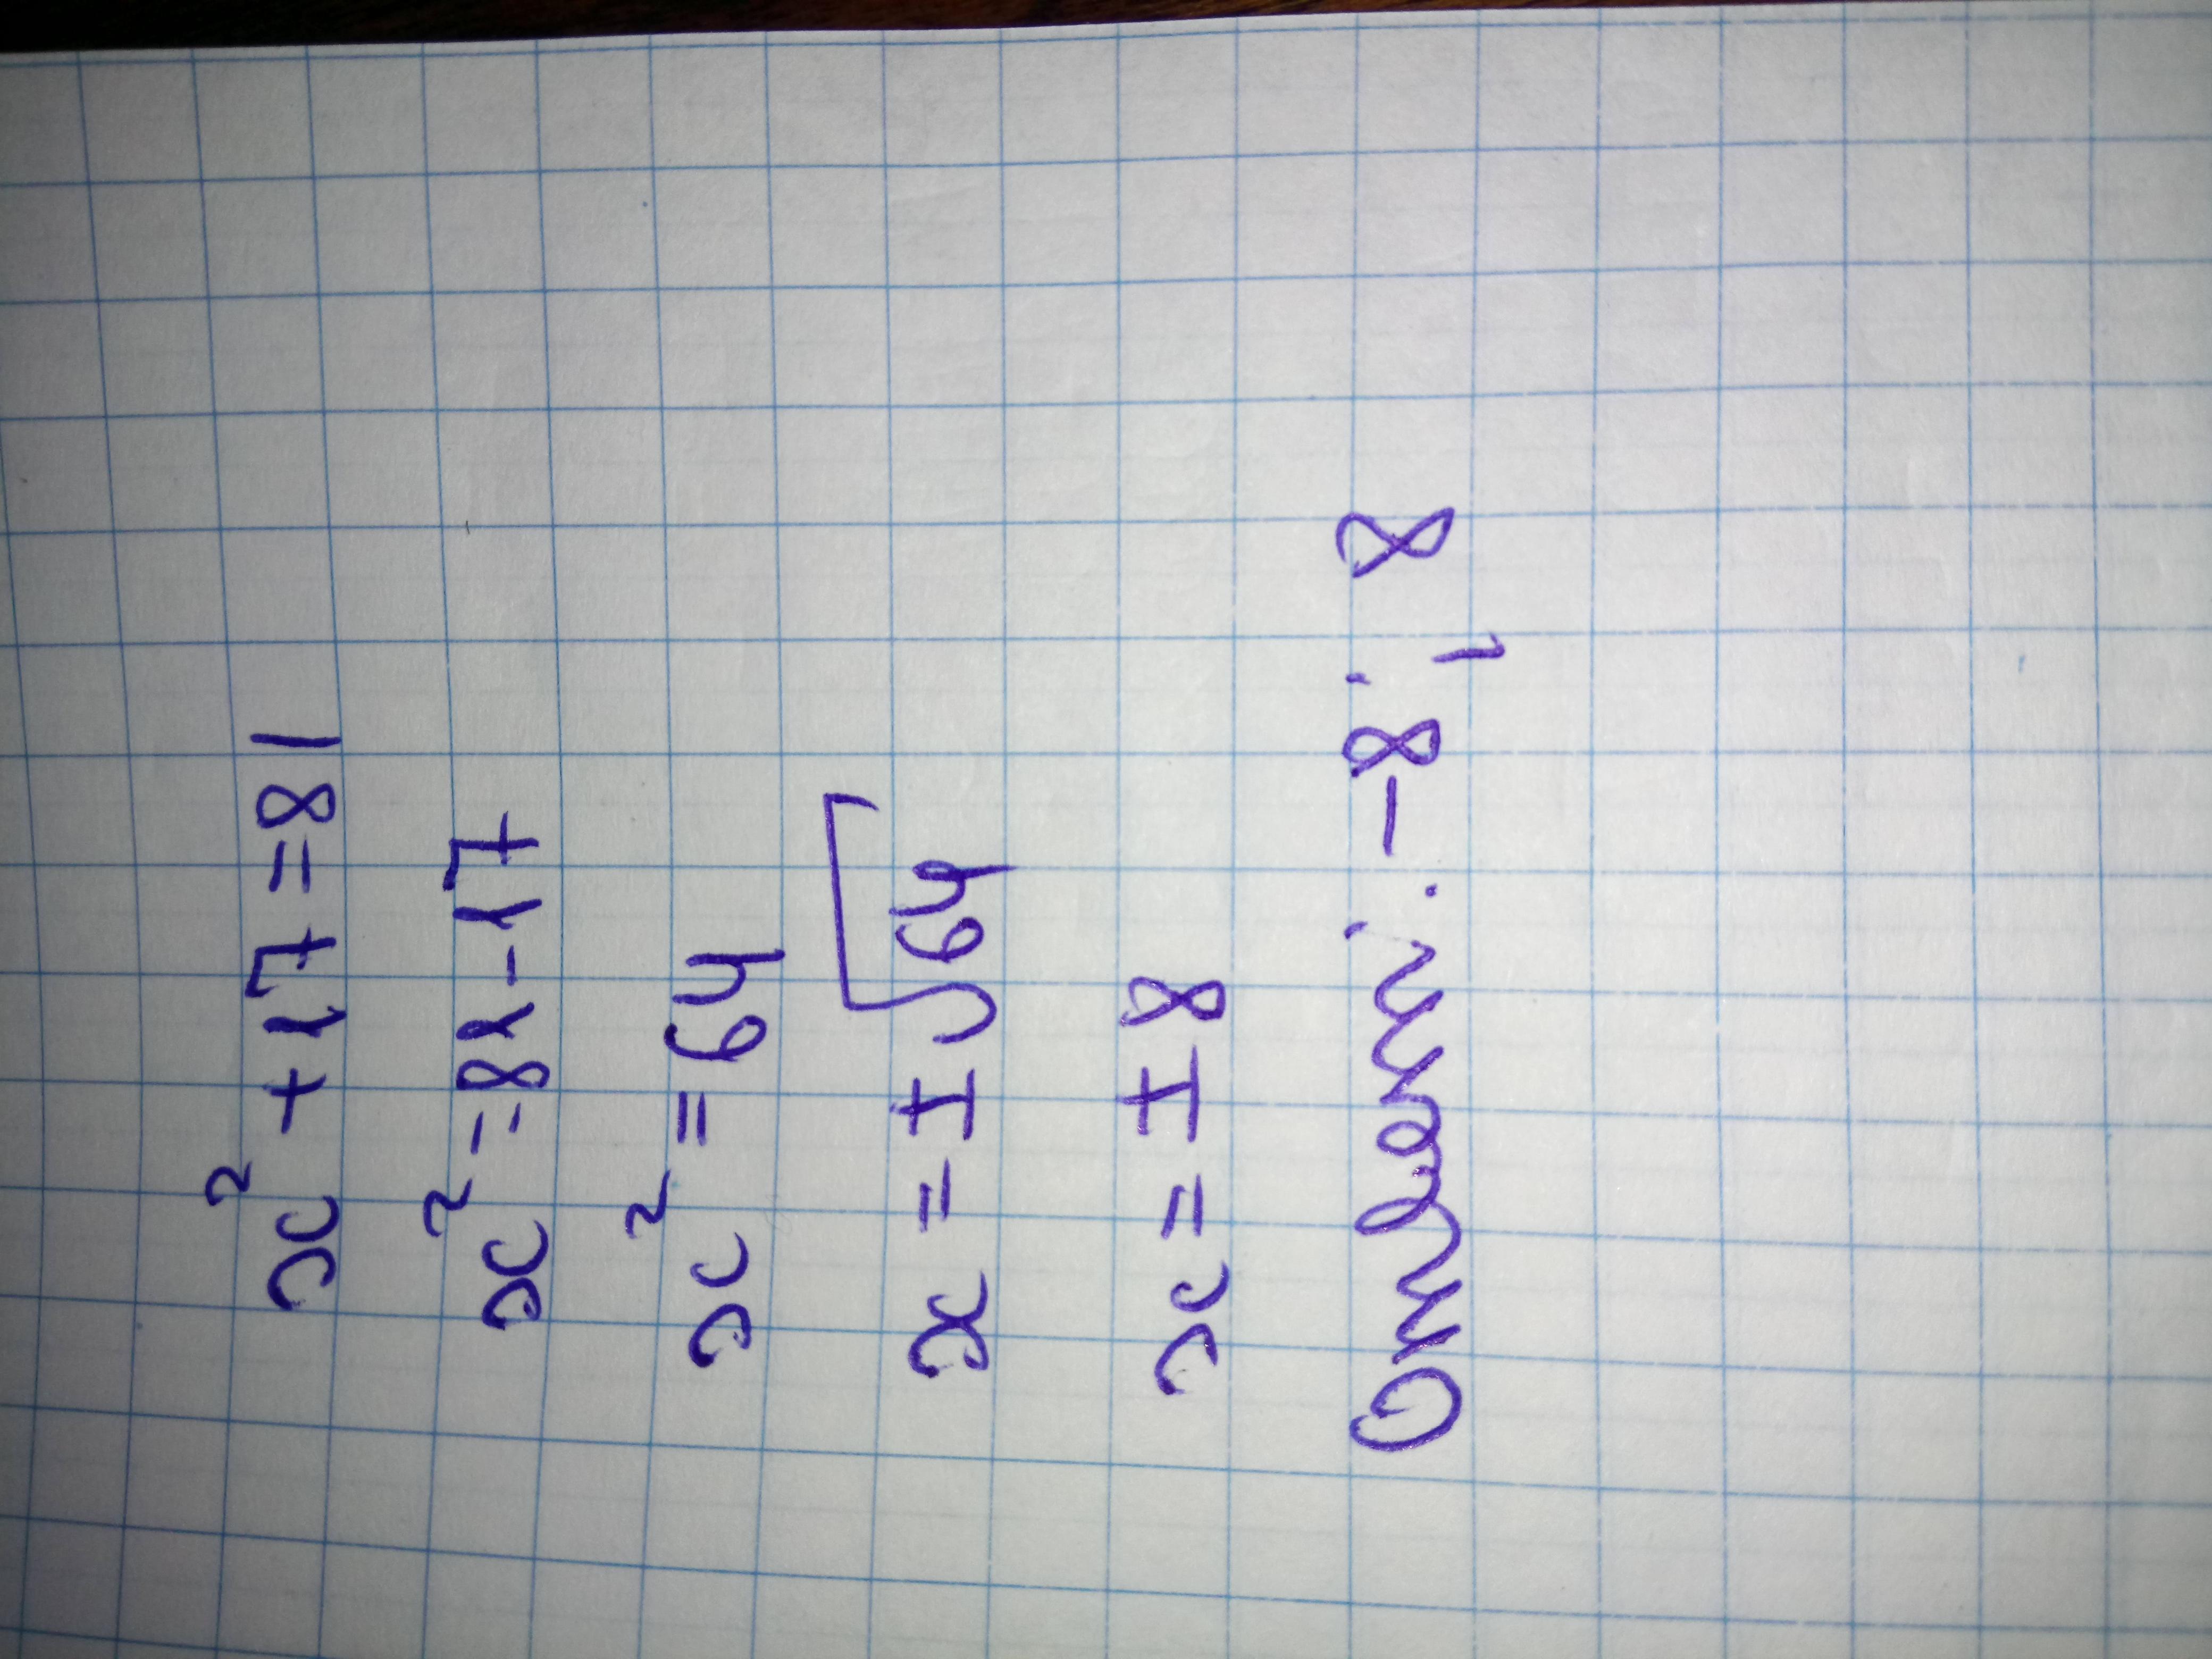 x² + 17 = 81
x² = 81 - 17
x² = 64
x = ± √64
x = ± 8
Ответ: -8; 8